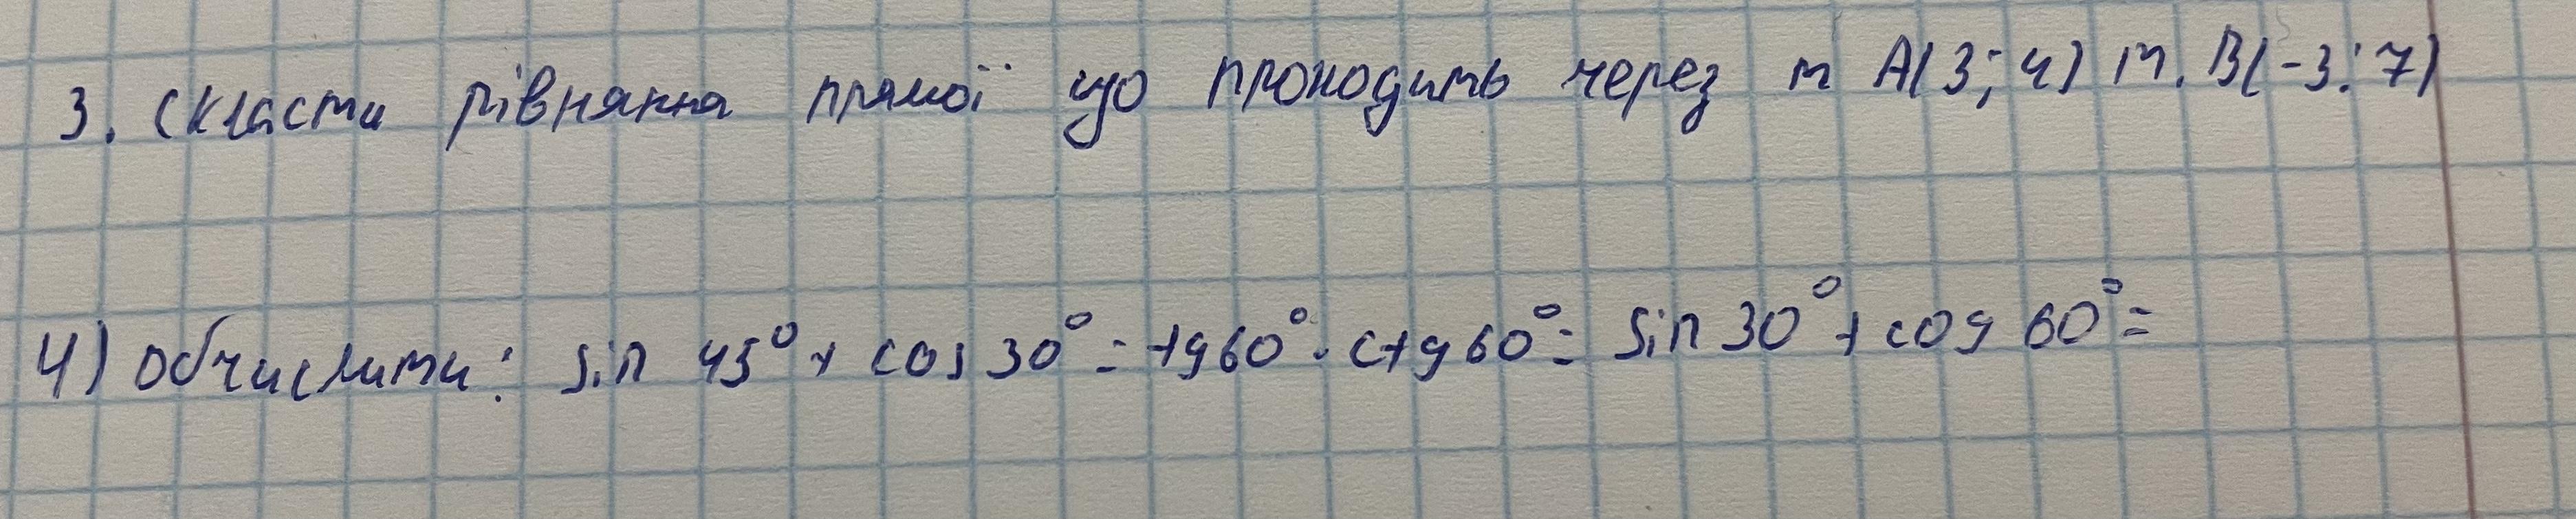 3. скласти рівняння прямої що проходить через т A(3;4) т. B(-3;7)
4) обчислити: sin 45° + cos 30° = tg 60° · ctg 60° = sin 30° + cos 60° =